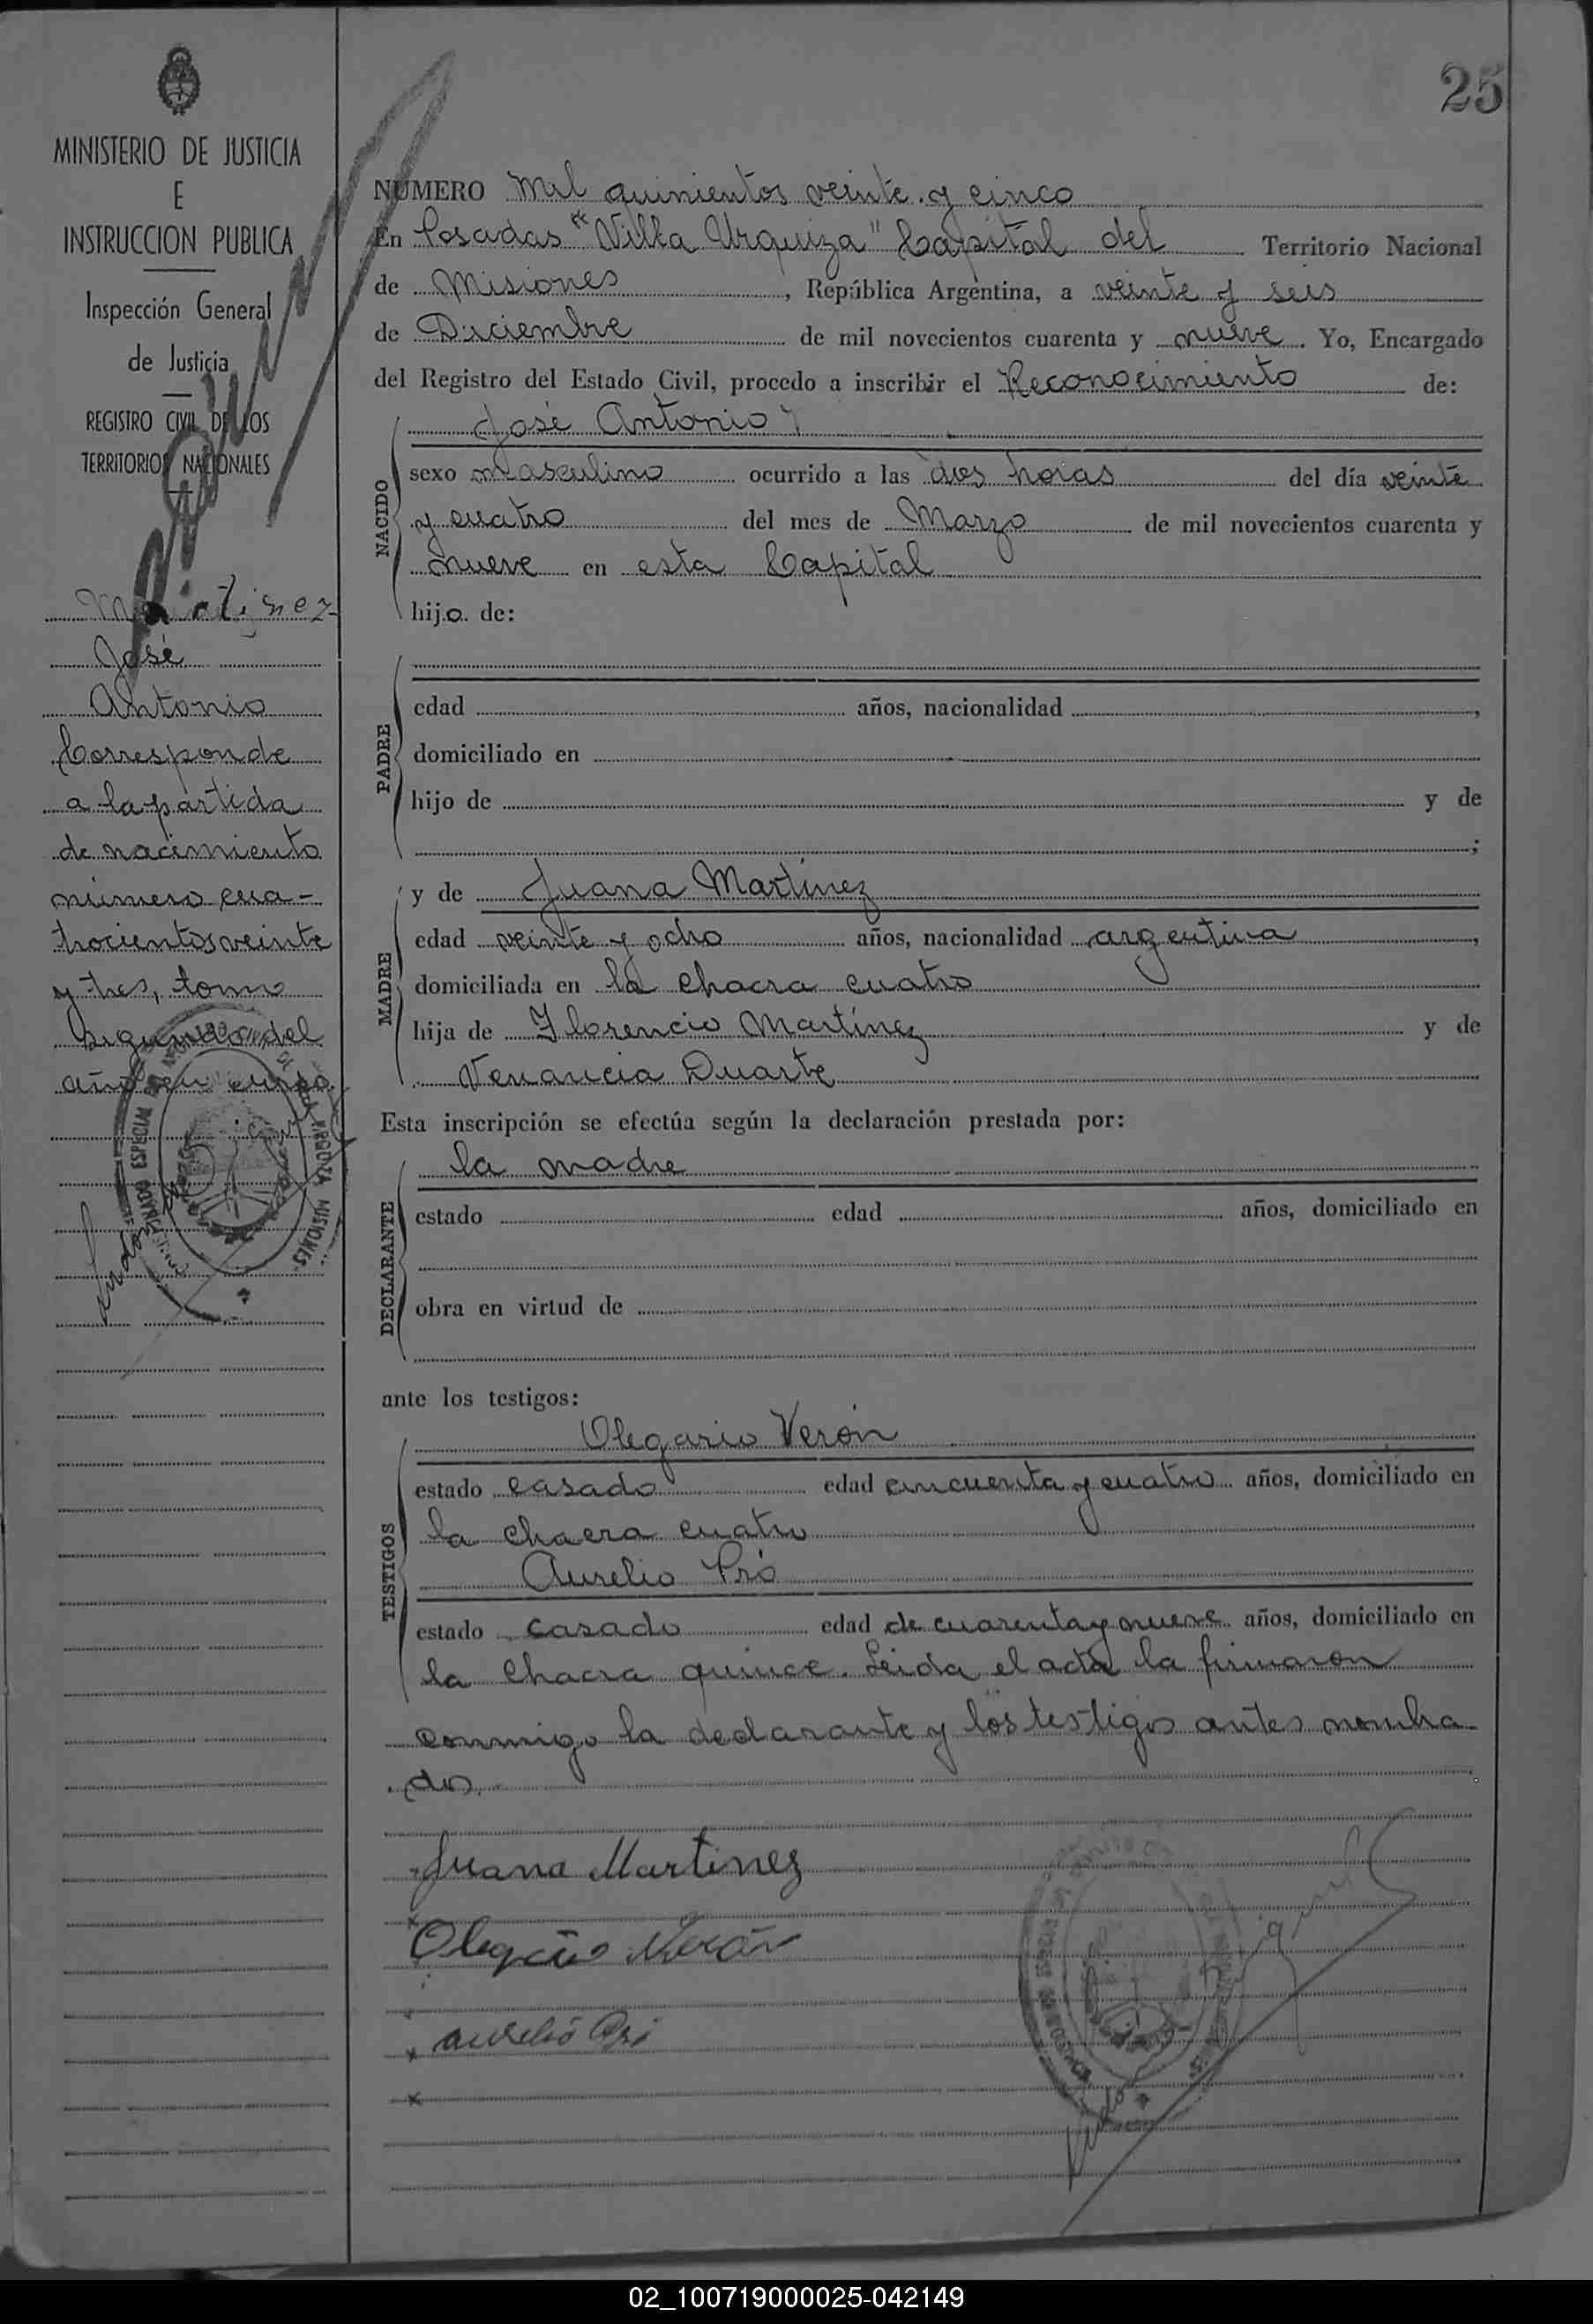 25
MINISTERIO DE JUSTICIA
E
INSTRUCCION PUBLICA
Inspección General
de Justicia
REGISTRO CIVIL DE LOS
TERRITORIOS NACIONALES
Martinez
José
Antonio
Corresponde
a la partida
de nacimiento
número cua-
trocientos veinte
y tres, tomo
segundo del
año en curso
NUMERO Mil quinientos veinte y cinco
En Posadas "Villa Urquiza" Capital del Territorio Nacional
de Misiones, República Argentina, a veinte y seis
de Diciembre de mil novecientos cuarenta y nueve. Yo, Encargado
del Registro del Estado Civil, procedo a inscribir el Reconocimiento de:
NACIDO
José Antonio
sexo masculino ocurrido a las dos horas del día veinte
y cuatro del mes de Marzo de mil novecientos cuarenta y
nueve en esta Capital
hijo de:
PADRE
edad años, nacionalidad ,
domiciliado en
hijo de y de
;
MADRE
y de Juana Martínez
edad veinte y ocho años, nacionalidad argentina,
domiciliada en la chacra cuatro
hija de Florencio Martínez y de
Venancia Duarte
Esta inscripción se efectúa según la declaración prestada por:
DECLARANTE
la madre
estado edad años, domiciliado en
obra en virtud de
ante los testigos:
TESTIGOS
Olegario Verón
estado casado edad cincuenta y cuatro años, domiciliado en
la chacra cuatro
Aurelio Pró
estado casado edad de cuarenta y nueve años, domiciliado en
la Chacra quince. Leida el acta la firmaron
conmigo la declarante y los testigos antes nombra-
dos.
Juana Martinez
Olegario Verón
aurelio
02_100719000025-042149